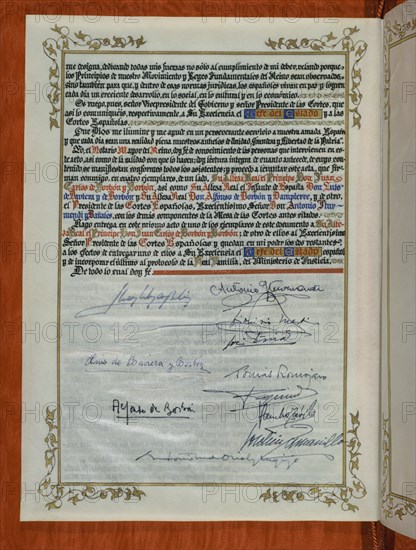 me designa, dedicando todas mis fuerzas no sólo al cumplimiento de mi deber, velando porque
los Principios de nuestro Movimiento y Leyes Fundamentales del Reino sean observados,
sino también para que, y dentro de esas normas jurídicas, los españoles vivan en paz y logren
cada día un creciente desarrollo, en lo social, en lo cultural y en lo económico.
Os ruego, pues, señor Vicepresidente del Gobierno y señor Presidente de las Cortes, que
así lo comuniquéis, respectivamente, a Su Excelencia el Jefe del Estado y a las
Cortes Españolas.
Que Dios me ilumine y me ayude en un perseverante servicio a nuestra amada España
y que cada día sean realidad plena nuestros anhelos de Unidad, Grandeza y Libertad de la Patria".
Yo, el Notario Mayor del Reino, doy fe de conocimiento de las personas que intervienen en es-
te acto, así como de la calidad con que lo hacen; doy lectura íntegra de cuanto antecede, de cuyo con-
tenido se manifiestan conformes todos los asistentes y procedo a levantar este acta, que fir-
man conmigo, en cuatro ejemplares, de un lado, Su Alteza Real el Príncipe Don Juan
Carlos de Borbón y Borbón, así como Su Alteza Real el Infante de España Don Luis
de Baviera y de Borbón y Su Alteza Real Don Alfonso de Borbón y Dampierre, y de otro,
el Presidente de las Cortes Españolas, Excelentísimo Señor Don Antonio Itur-
mendi y Bañales, con los demás componentes de la Mesa de las Cortes antes citados.
Hago entrega en este mismo acto de uno de los ejemplares de este documento a Su Alte-
za Real el Príncipe Don Juan Carlos de Borbón y Borbón; de otro de ellos al Excelentísimo
Señor Presidente de las Cortes Españolas y quedan en mi poder los dos restantes,
a los efectos de entregar uno de ellos a Su Excelencia el Jefe del Estado español
y de incorporar el último al protocolo de la Real Familia, del Ministerio de Justicia.
De todo lo cual doy fe.
Antonio Iturmendi
Luis de Baviera y Borbón
Tomás Romojaro
Alfonso de Borbón